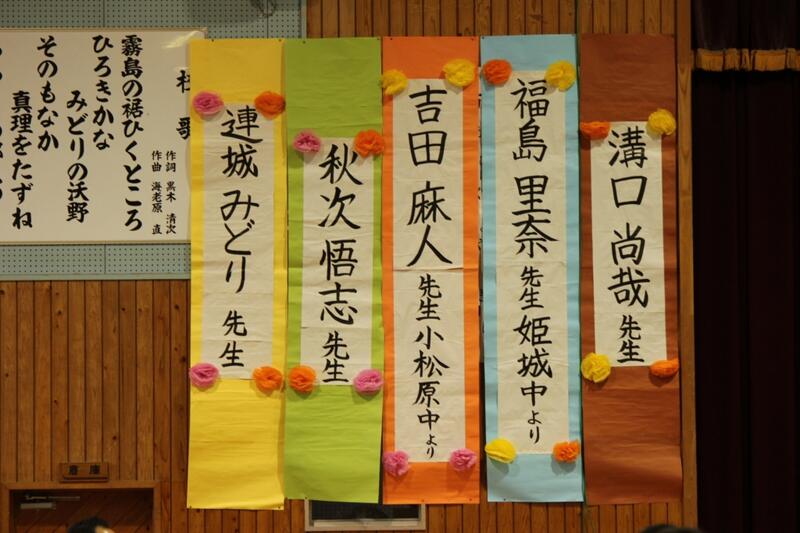 溝口 尚哉 先生
福島 里奈 先生 姫城中より
吉田 麻人 先生 小松原中より
秋次 悟志 先生
連城 みどり 先生
校歌
作詞 黒木 清次
作曲 海老原 直
霧島の裾ひくところ
ひろきかな
みどりの沃野
そのもなか
真理をたずね
倉庫